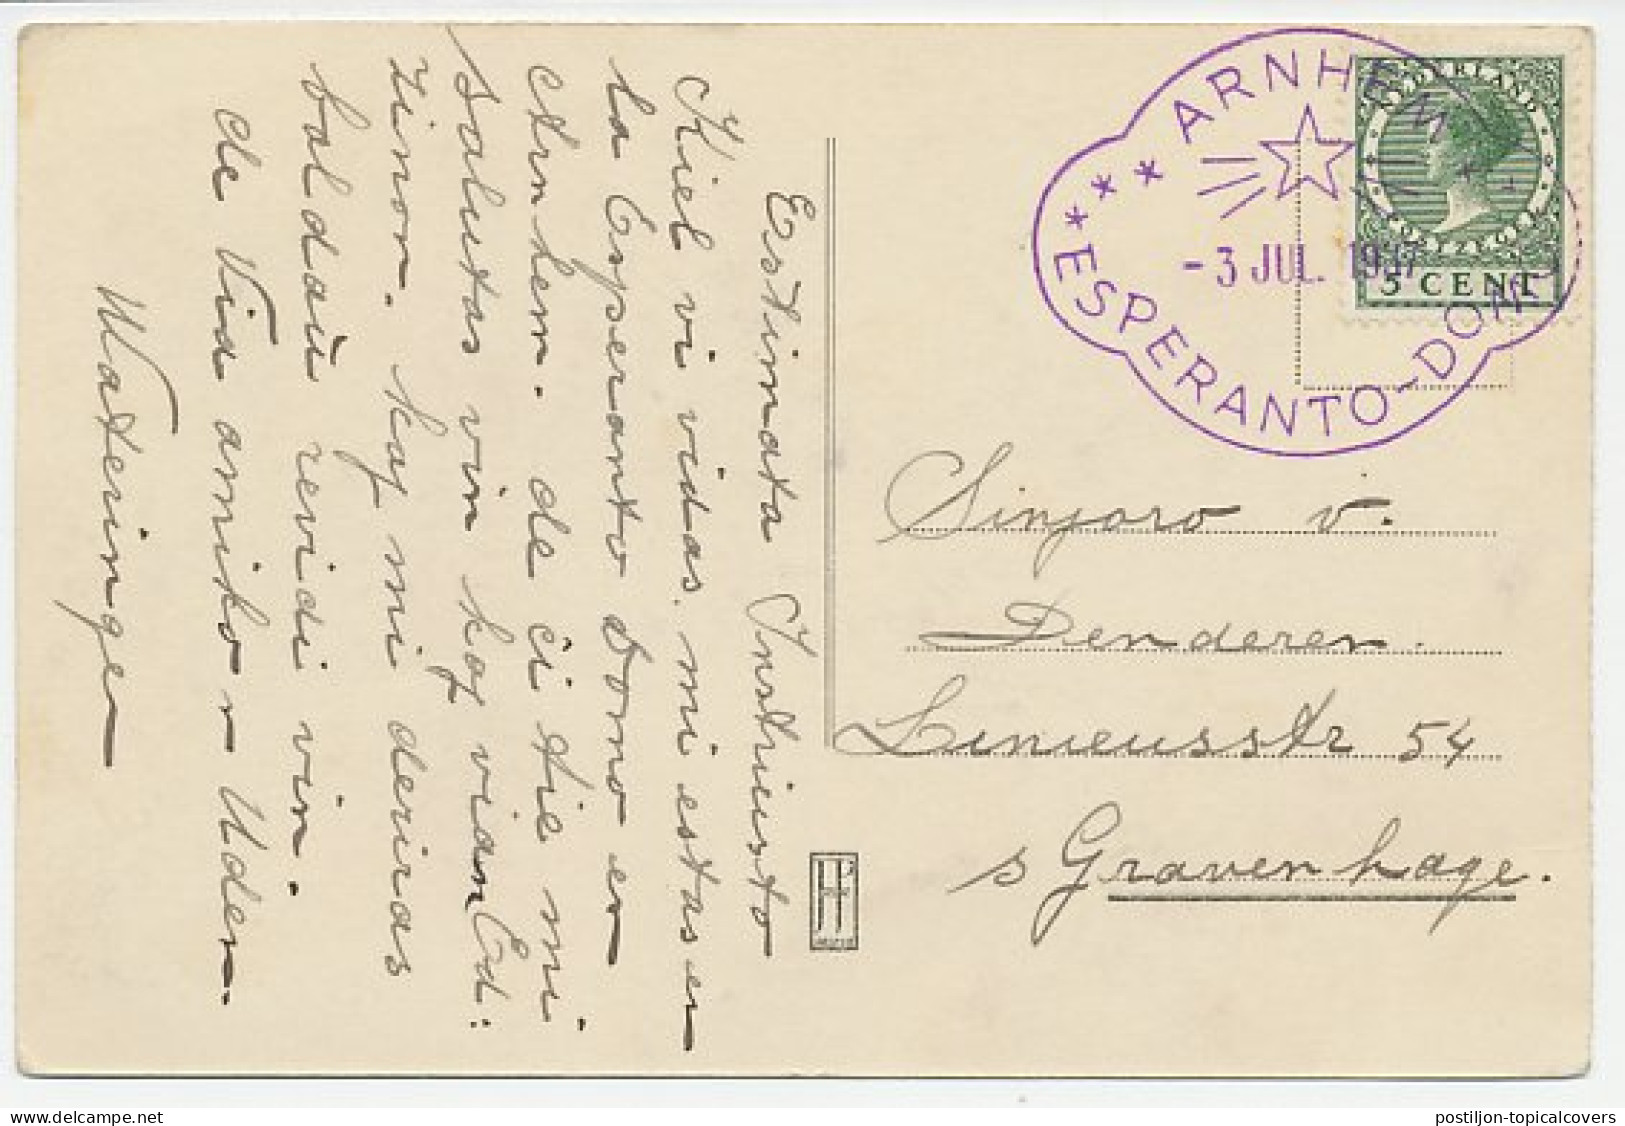 Estimata Instruisto
Kiel vi vidas. mi estas en
la Esperanto Domo en
Arnhem. de ĉi tie mi
salutas vin kaj vian Ed:
zinon. kaj mi deziras
baldaŭ revidi vin.
de Via amiko n Uden.
Wateringe
ARNHEM
- 3 JUL. 1937
ESPERANTO-DOMO
NEDERLAND
POSTZEGEL
5 CENT
Sinjoro v.
Denderen.
Linieusstr 54
s Gravenhage.
postiljon-topicalcovers